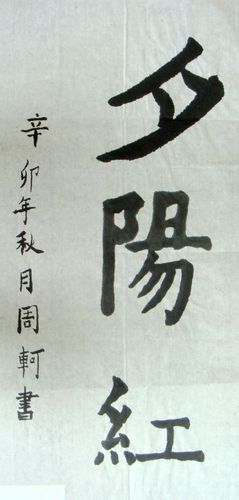 夕陽紅
辛卯年秋月周軻書